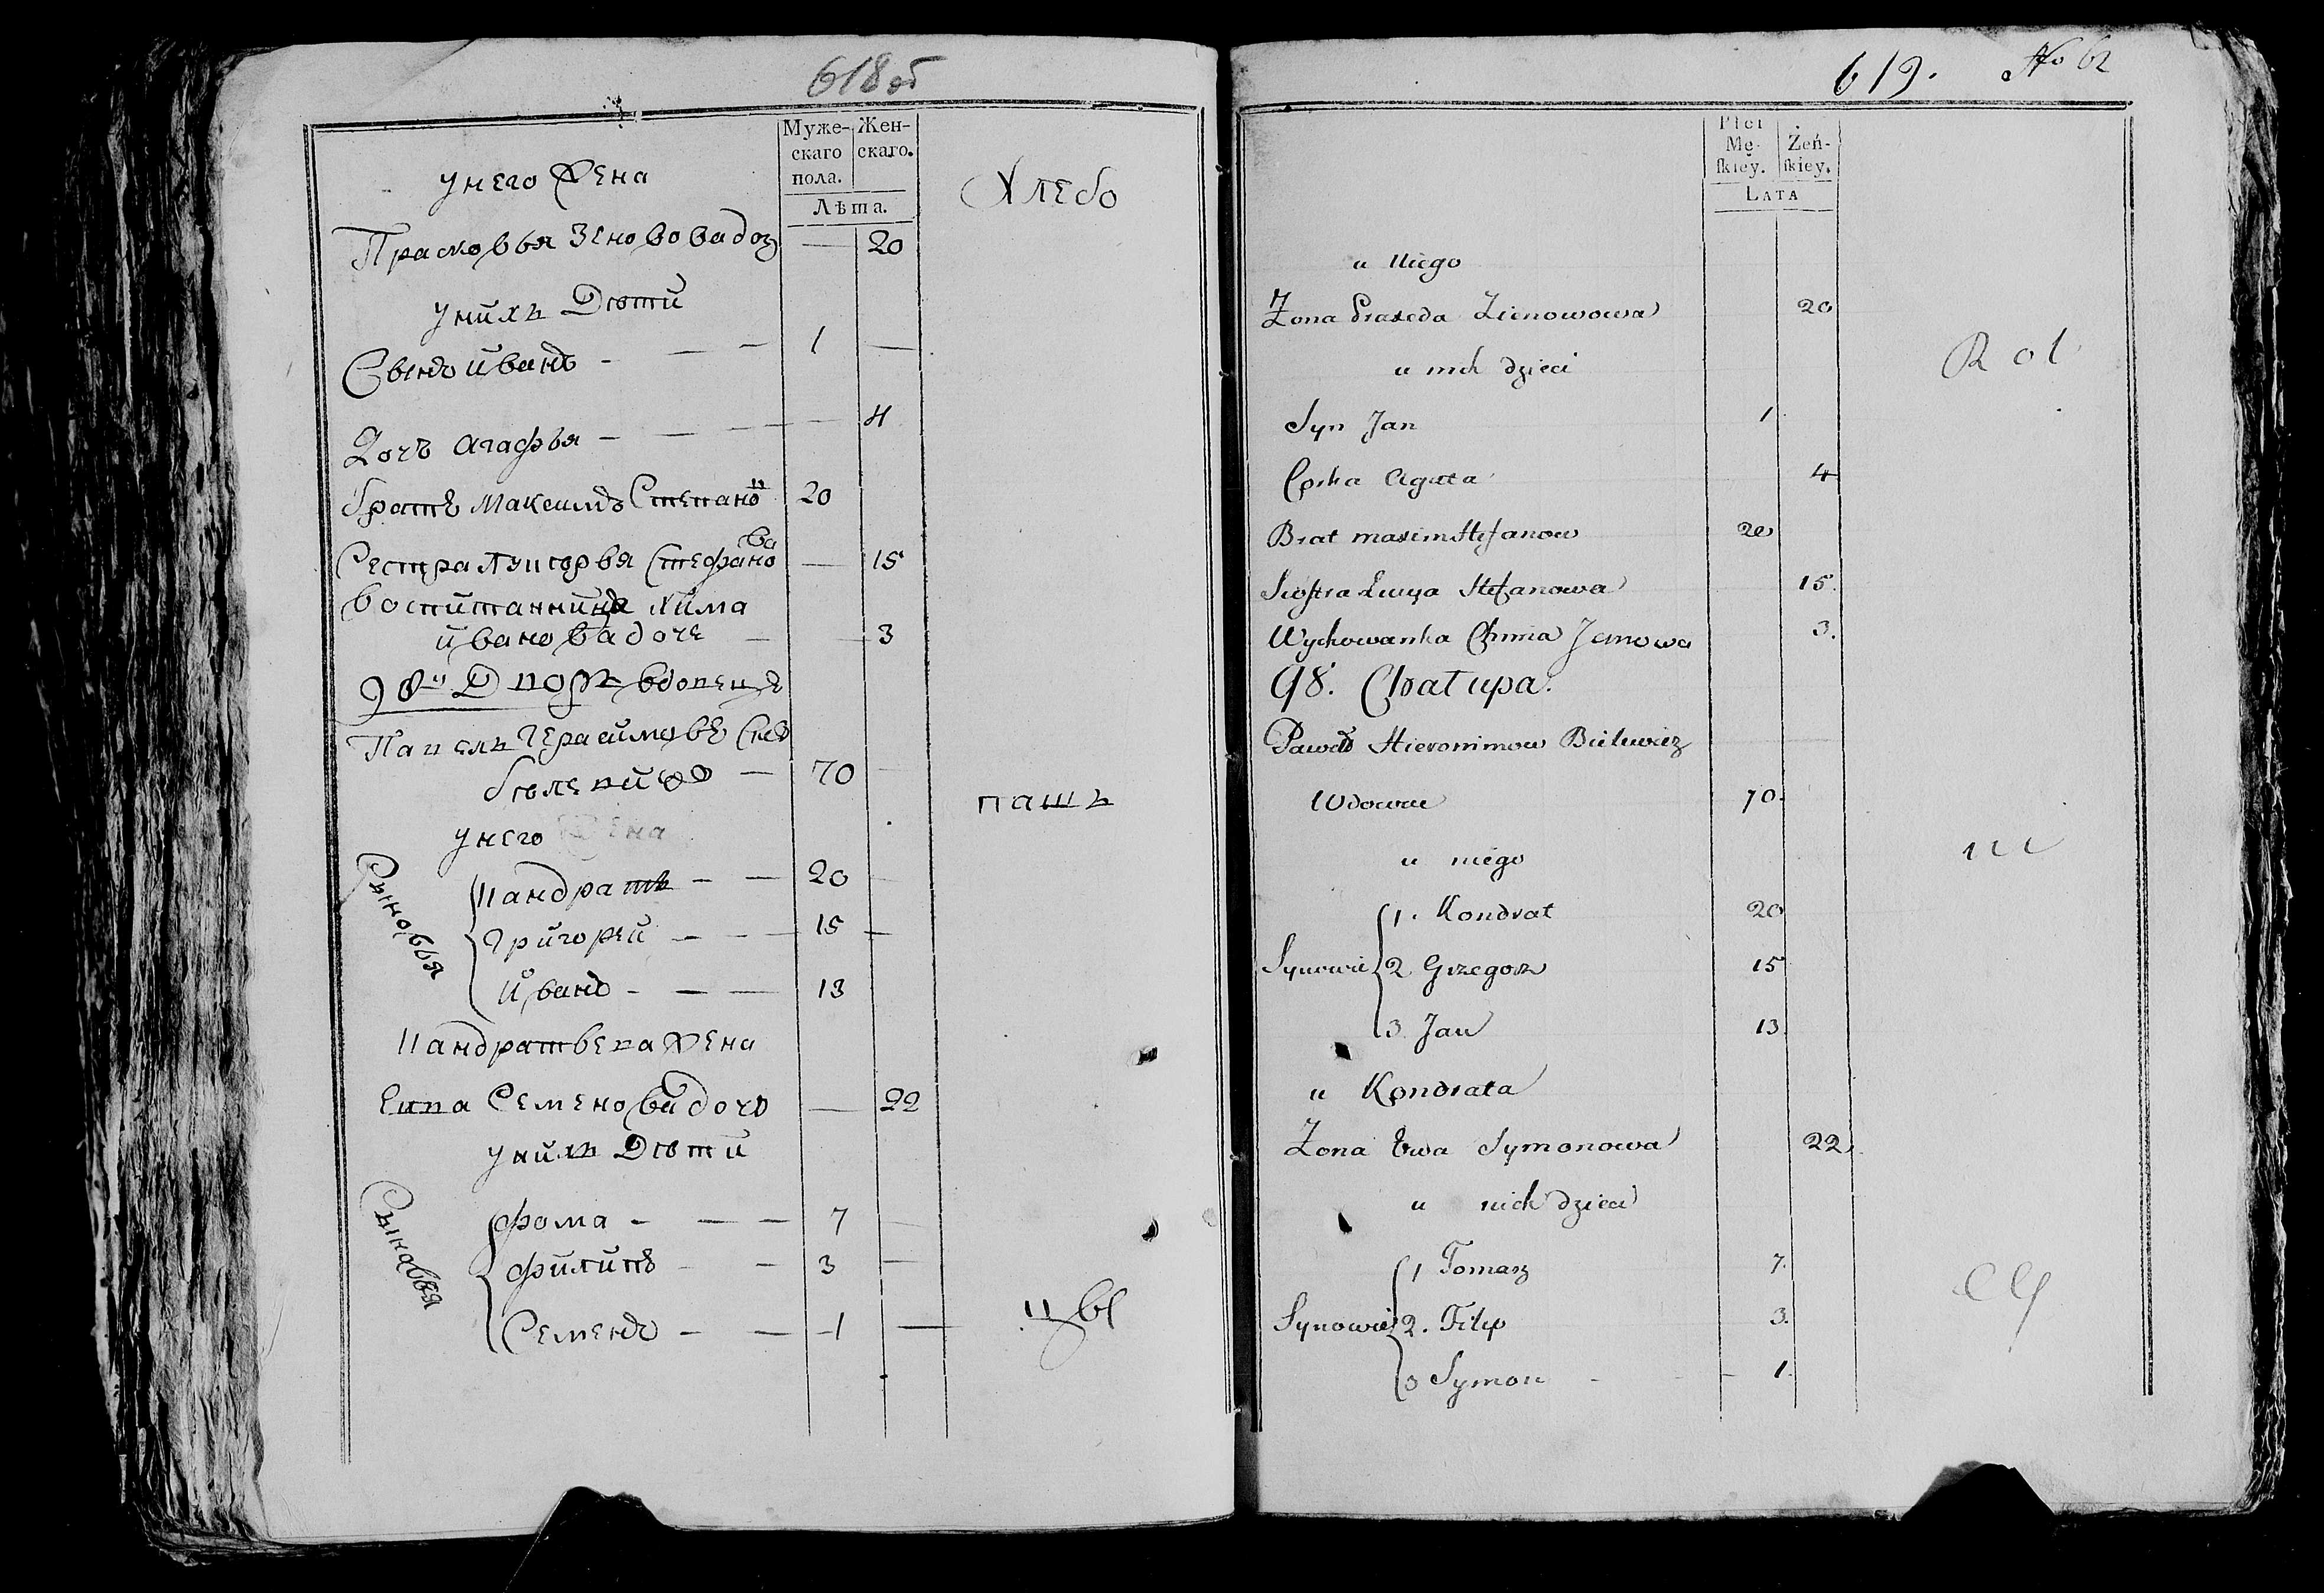 618 об
Муже-
скаго
пола.
Жен-
скаго.
Лѣта.
у него жена
Хлебо
Прасковья Зеновова доч 20
у нихъ Дѣти
Сынъ иванъ 1
Дочъ агафья 4
братъ Максимъ Степано 20
Сестра Люцорья Стефано ва 15
воспитанница Хима
ивановa доче 3
98й Дворъ вдовецъ
Павелъ Герасимовъ Снъ
бѣлевичъ 70
пашъ
у него жена
Сыновья
Кандратъ 20
Григорей 15
Иванъ 13
Кандратьева жена
Ева Семенова дочъ 22
у нихъ Дѣти
Сынавья
фома 7
филипъ 3
Семенъ 1
цы
619. No 62
Płci
Mę-
ſkiey.
Żeń-
ſkiey.
LATA
u Niego
Żona Praxeda Zienowowa 20
Rol
u nich dzieci
Syn Jan 1
Corka Agata 4
Brat maxim Stefanow 20
Siostra Łucya Stefanowa 15.
Wychowanka Chima Janowa 3.
98. Chałupa.
Paweł Hieronimow Bielewicz
Wdowiec 70.
u niego
ni
Synowie
1. Kondrat 20
2 Grzegorz 15
3. Jan 13.
u Kondrata
Żona Ewa Symonowa 22.
u nich dzieci
Synowie
1 Tomasz 7.
2. Filip 3.
3 Symon 1.
cy